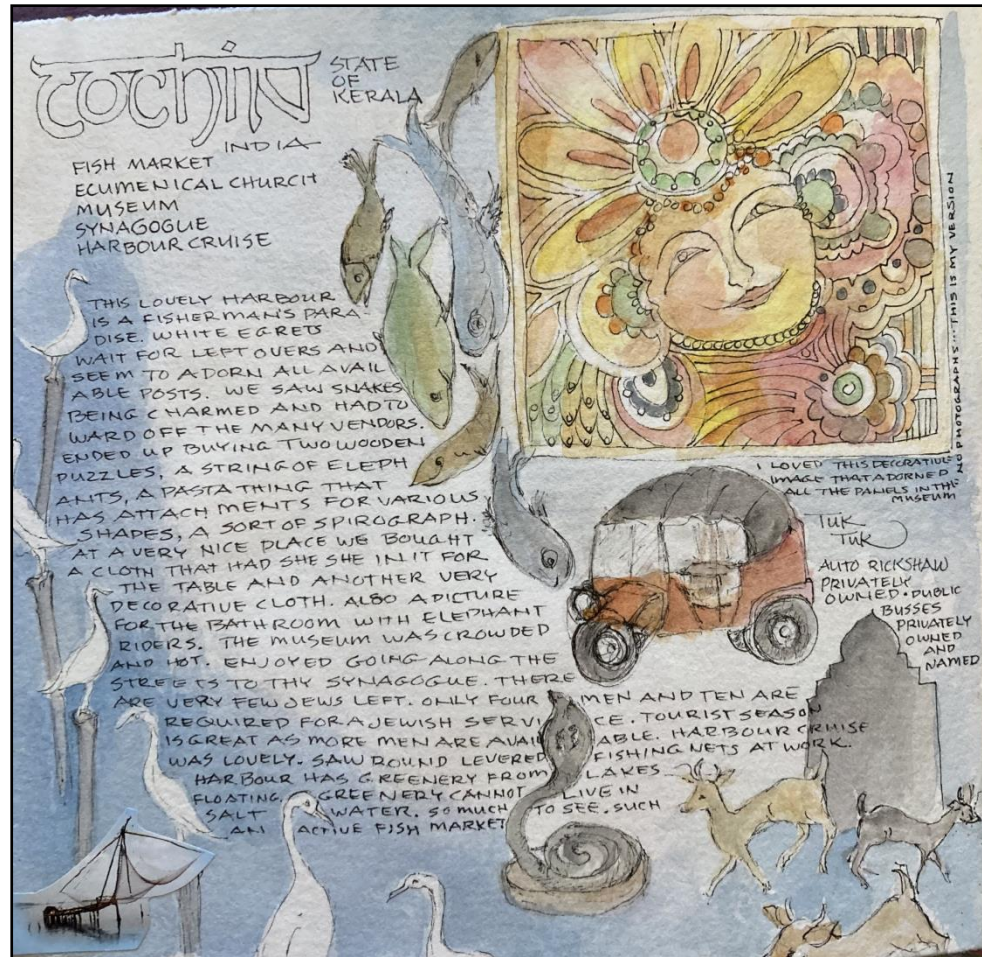 COCHIN
STATE
OF
KERALA
INDIA
FISH MARKET
ECUMENICAL CHURCH
MUSEUM
SYNAGOGUE
HARBOUR CRUISE
THIS LOVELY HARBOUR
IS A FISHERMAN'S PARA-
DISE. WHITE EGRETS
WAIT FOR LEFT OVERS AND
SEEM TO ADORN ALL AVAIL
ABLE POSTS. WE SAW SNAKES
BEING CHARMED AND HAD TO
WARD OFF THE MANY VENDORS.
ENDED UP BUYING TWO WOODEN
PUZZLES, A STRING OF ELEPH
ANTS, A PASTA THING THAT
HAS ATTACHMENTS FOR VARIOUS
SHAPES, A SORT OF SPIROGRAPH.
AT A VERY NICE PLACE WE BOUGHT
A CLOTH THAT HAD SHE SHE IN IT FOR
THE TABLE AND ANOTHER VERY
DECORATIVE CLOTH. ALSO A PICTURE
FOR THE BATHROOM WITH ELEPHANT
RIDERS. THE MUSEUM WAS CROWDED
AND HOT. ENJOYED GOING ALONG THE
STREETS TO THY SYNAGOGUE. THERE
ARE VERY FEW JEWS LEFT. ONLY FOUR MEN AND TEN ARE
REQUIRED FOR A JEWISH SERVICE. TOURIST SEASON
IS GREAT AS MORE MEN ARE AVAILABLE. HARBOUR CRUISE
WAS LOVELY. SAW ROUND LEVERED FISHING NETS AT WORK.
HARBOUR HAS GREENERY FROM LAKES.
FLOATING GREENERY CANNOT LIVE IN
SALT WATER. SO MUCH TO SEE. SUCH
AN ACTIVE FISH MARKET
NO PHOTOGRAPHS...THIS IS MY VERSION
I LOVED THIS DECORATIVE
IMAGE THAT ADORNED
ALL THE PANELS IN THE
MUSEUM
TUK
TUK
AUTO RICKSHAW
PRIVATELY
OWNED. PUBLIC
BUSSES
PRIVATELY
OWNED
AND
NAMED